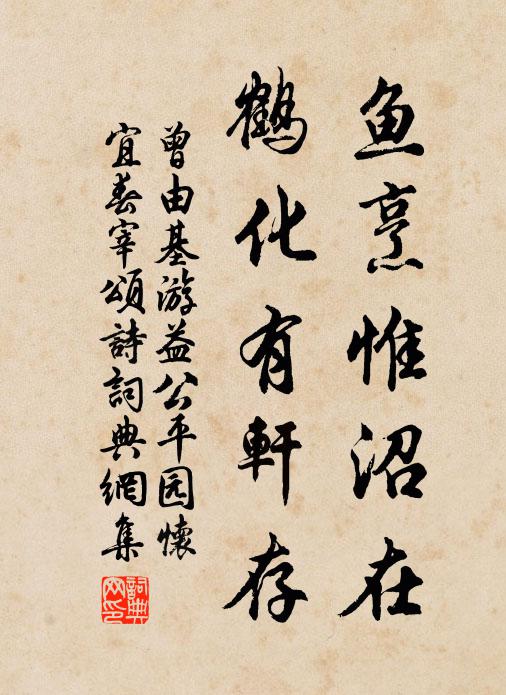 鱼烹惟沼在
鶴化有軒存
曾由基游益公平园懷
宜春宰頌詩詞典網集
詞典网印